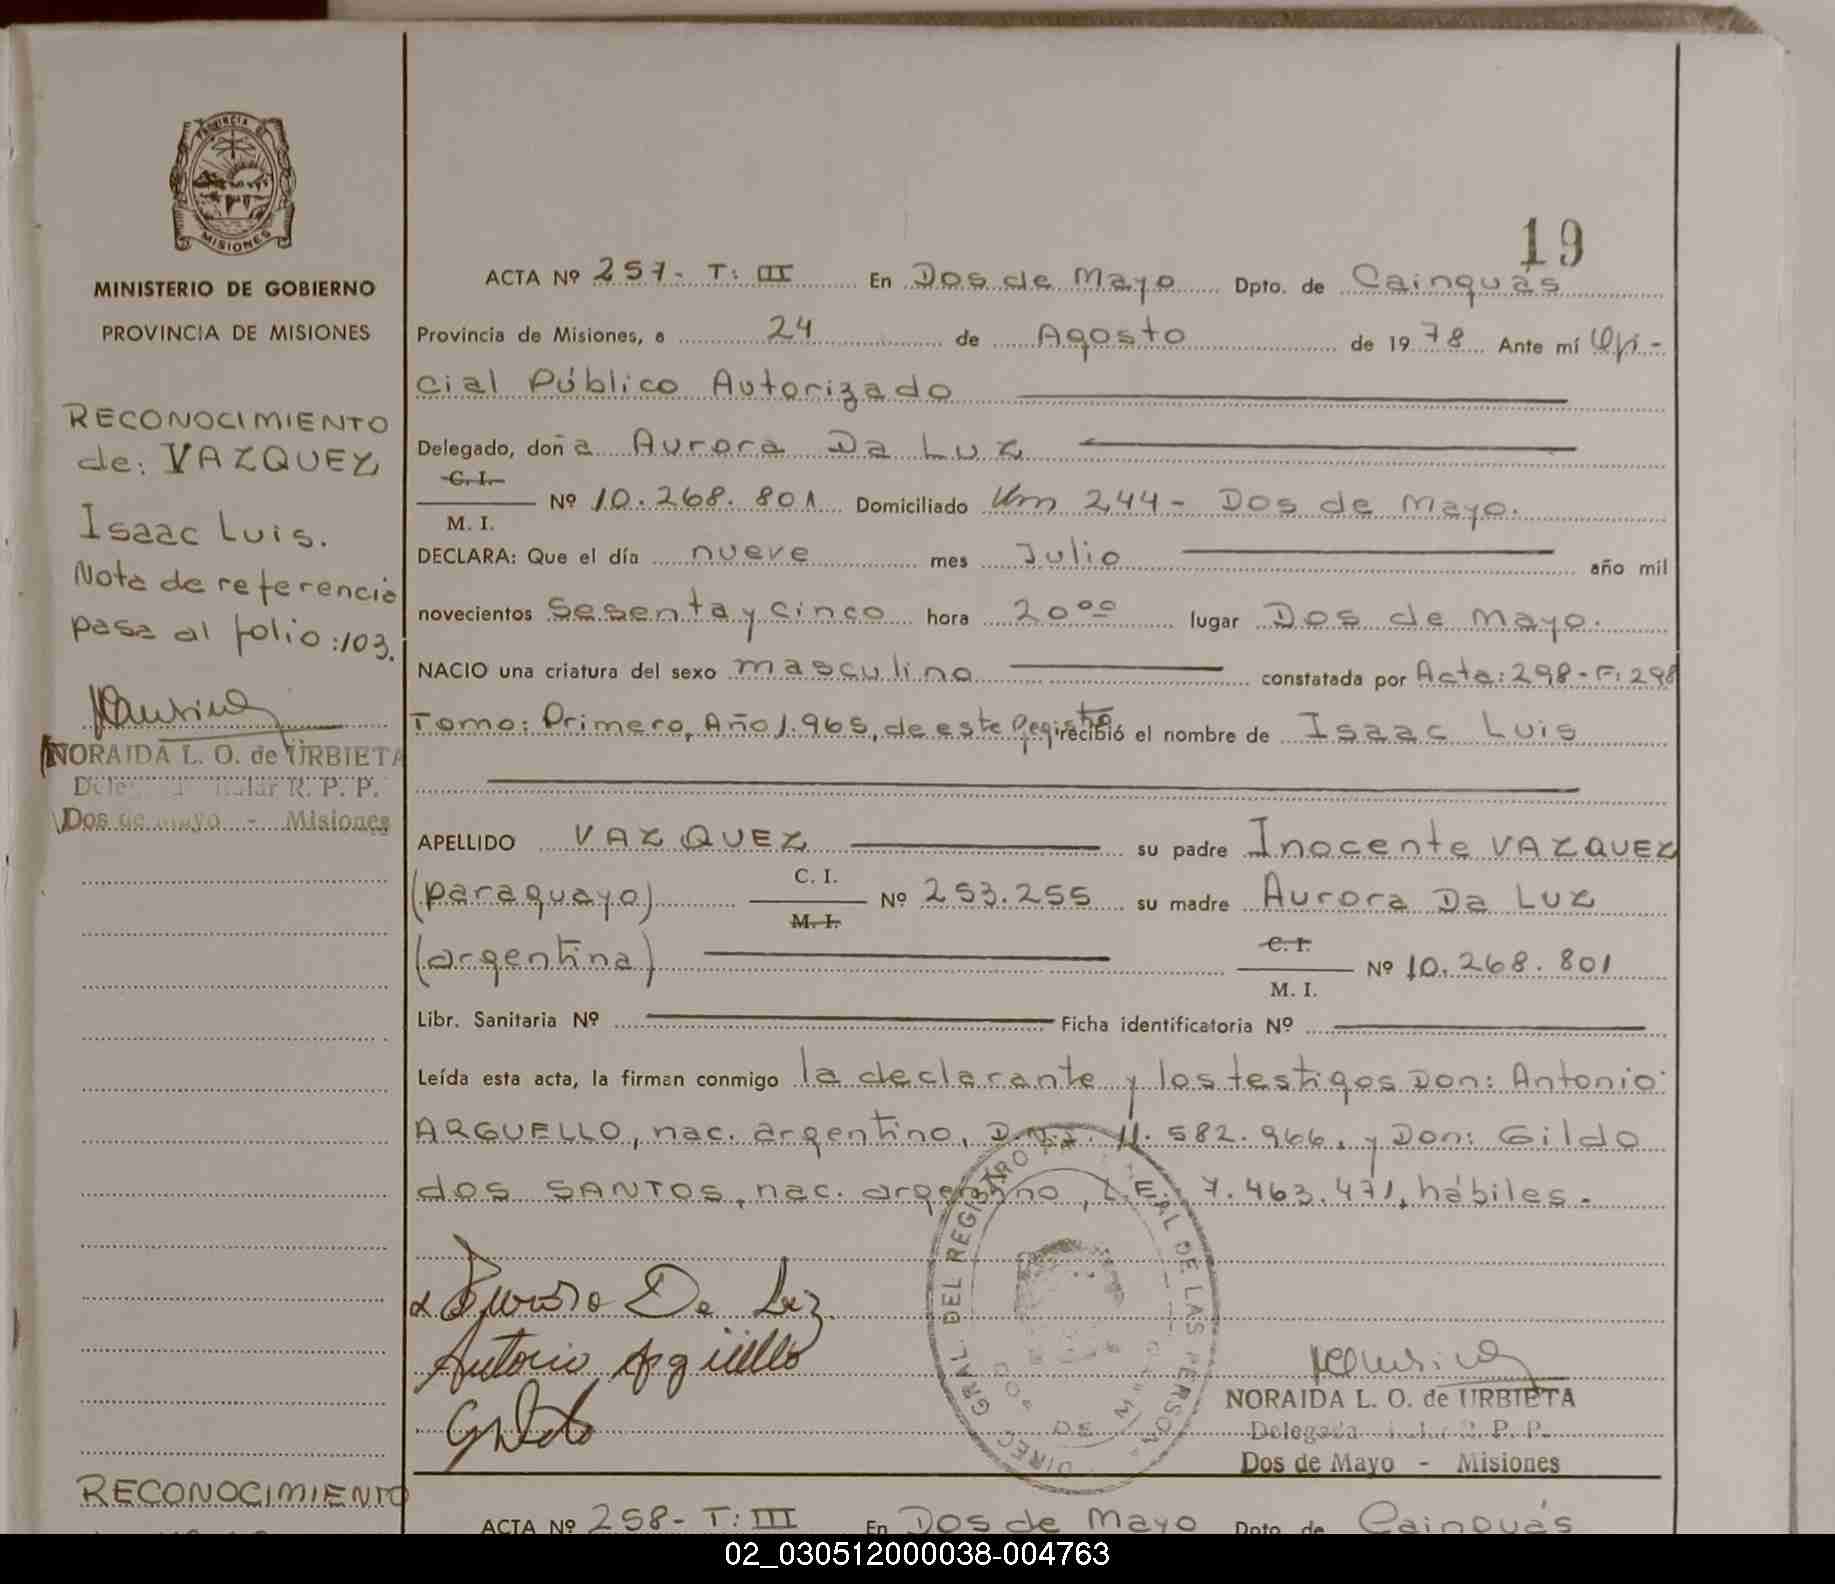 PROVINCIA DE
MISIONES
MINISTERIO DE GOBIERNO
PROVINCIA DE MISIONES
RECONOCIMIENTO
de: VAZQUEZ
Isaac Luis.
Nota de referencia
pasa al folio:103.
NORAIDA L. O. de URBIETA
R. P. P.
Dos de Mayo - Misiones
RECONOCIMIENTO
19
ACTA Nº 257- T: III En Dos de Mayo Dpto. de Cainguás
Provincia de Misiones, a 24 de Agosto de 1978 Ante mí Ofi-
cial Público Autorizado
Delegado, doña Aurora Da Luz
C. I.
M. I. Nº 10.268.801 Domiciliado Km 244- Dos de Mayo.
DECLARA: Que el día nueve mes Julio año mil
novecientos Sesenta y cinco hora 20 oo lugar Dos de Mayo.
NACIO una criatura del sexo masculino constatada por Acta: 298-F: 298
Tomo: Primero, Año 1.965, de este Registro recibió el nombre de Isaac Luis
APELLIDO VAZQUEZ su padre Inocente VAZQUEZ
(paraguayo) C. I. M. I. Nº 253.255 su madre Aurora Da Luz
(argentina) C. I. M. I. Nº 10.268.801
Libr. Sanitaria Nº Ficha identificatoria Nº
Leída esta acta, la firman conmigo la declarante y los testigos Don: Antonio
ARGUELLO, nac. argentino, D.N.I. 11.582.966, y Don: Gildo
dos SANTOS, nac. argentino, L.E. 7.463.471, hábiles.-
Aurora Da Luz
Antonio Argüello
DIREC. GRAL DEL REGISTRO DE LAS PERSONAS
DOS DE MAYO
NORAIDA L. O. de URBIETA
Delegada R. P. P.
Dos de Mayo - Misiones
ACTA Nº 258- T: III En Dos de Mayo Dpto. de Cainguás
02_030512000038-004763